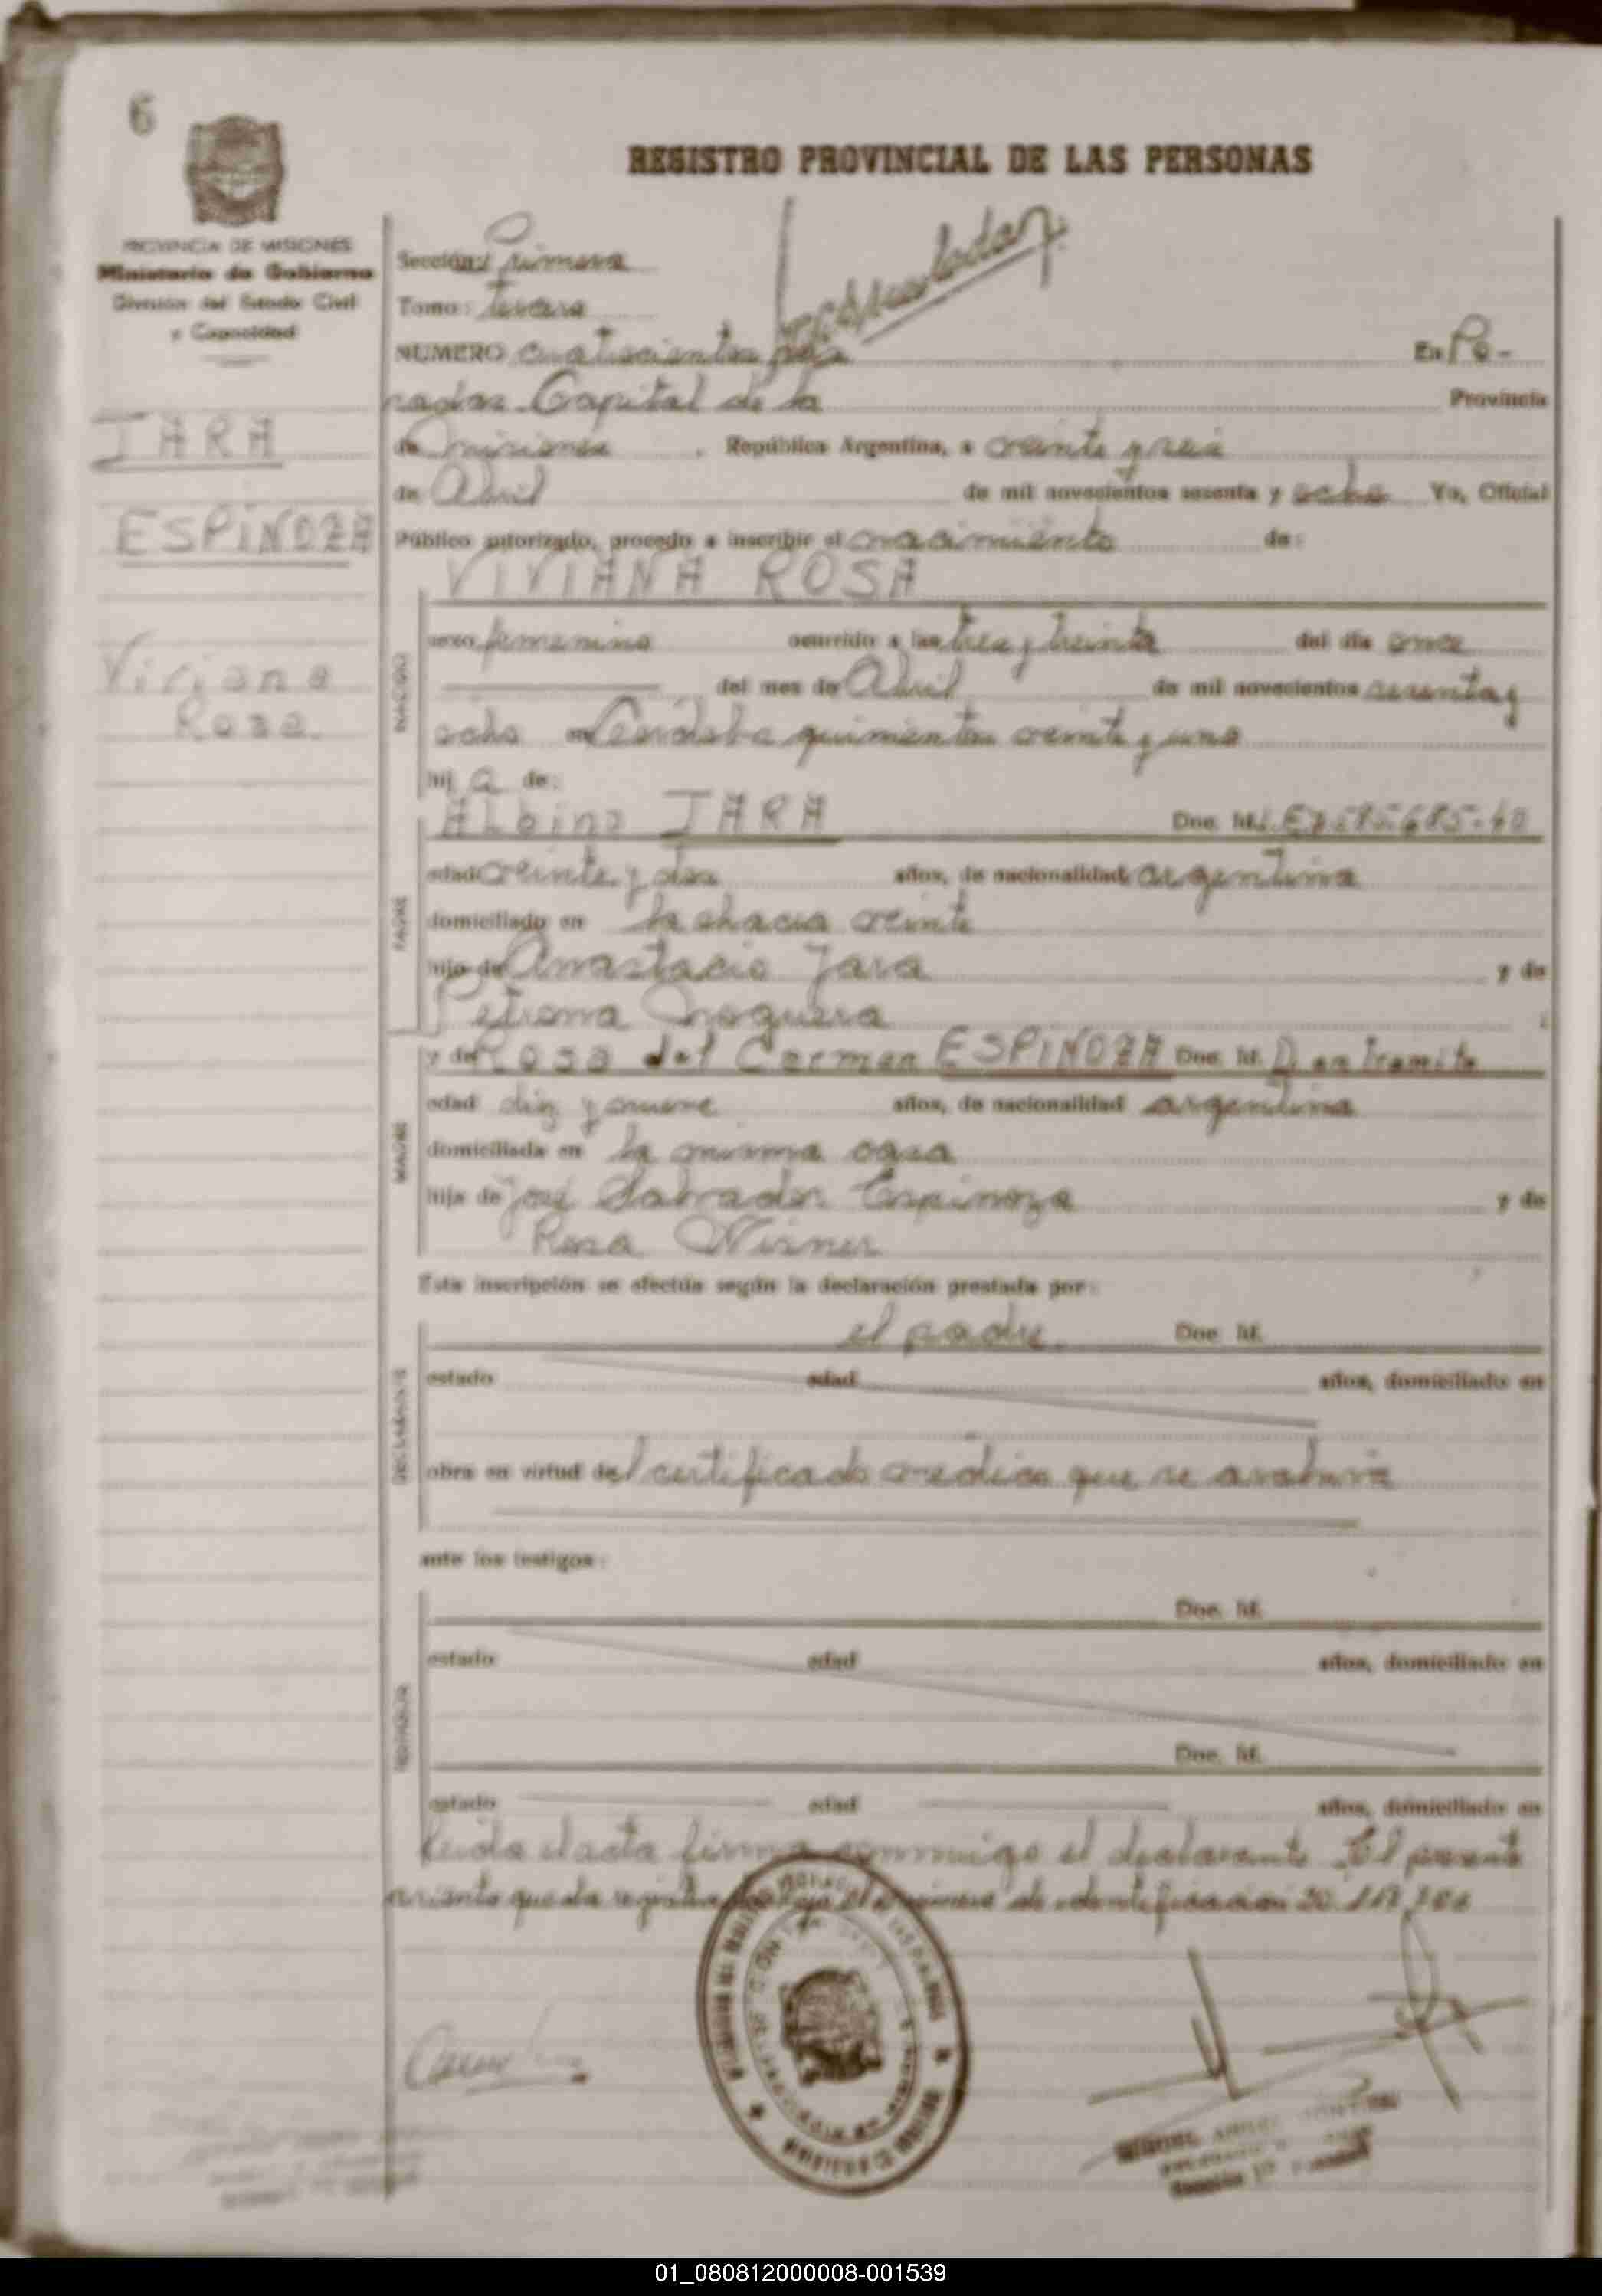 6
REGISTRO PROVINCIAL DE LAS PERSONAS
PROVINCIA DE MISIONES
Ministerio de Gobierno
División del Estado Civil
y Capacidad
Sección: Primera
Tomo: Tercero
NUMERO cuatrocientos En Po-
sadas Capital de la Provincia
de Misiones, República Argentina, a veinte y seis
de Abril de mil novecientos sesenta y ocho Yo, Oficial
Público autorizado, procedo a inscribir el nacimiento de:
JARA
ESPINOZA
Viviana
Rosa
VIVIANA ROSA
NACIDO
sexo femenino ocurrido a las tres y treinta del día once
del mes de Abril de mil novecientos sesenta y
ocho en Córdoba quinientos veinte y uno
hij a de:
PADRE
Albino JARA Doc. Id.
edad veinte y dos años, de nacionalidad argentina
domiciliado en la chacra veinte
hijo de Anastacio Jara y de
Petrona Noguera
MADRE
y de Rosa del Carmen ESPINOZA Doc. Id. D en tramite
edad diez y nueve años, de nacionalidad argentina
domiciliada en la misma casa
hija de José Labrador Espinoza y de
Rosa
Esta inscripción se efectúa según la declaración prestada por:
DECLARANTE
el padre Doc. Id.
estado edad años, domiciliado en
obra en virtud del certificado médico que se archiva
ante los testigos:
TESTIGOS
Doc. Id.
estado edad años, domiciliado en
Doc. Id.
estado edad años, domiciliado en
Leida el acta firma conmigo el declarante. El presente
asiento queda registrado bajo el número de identificación 20.117.
01_080812000008-001539